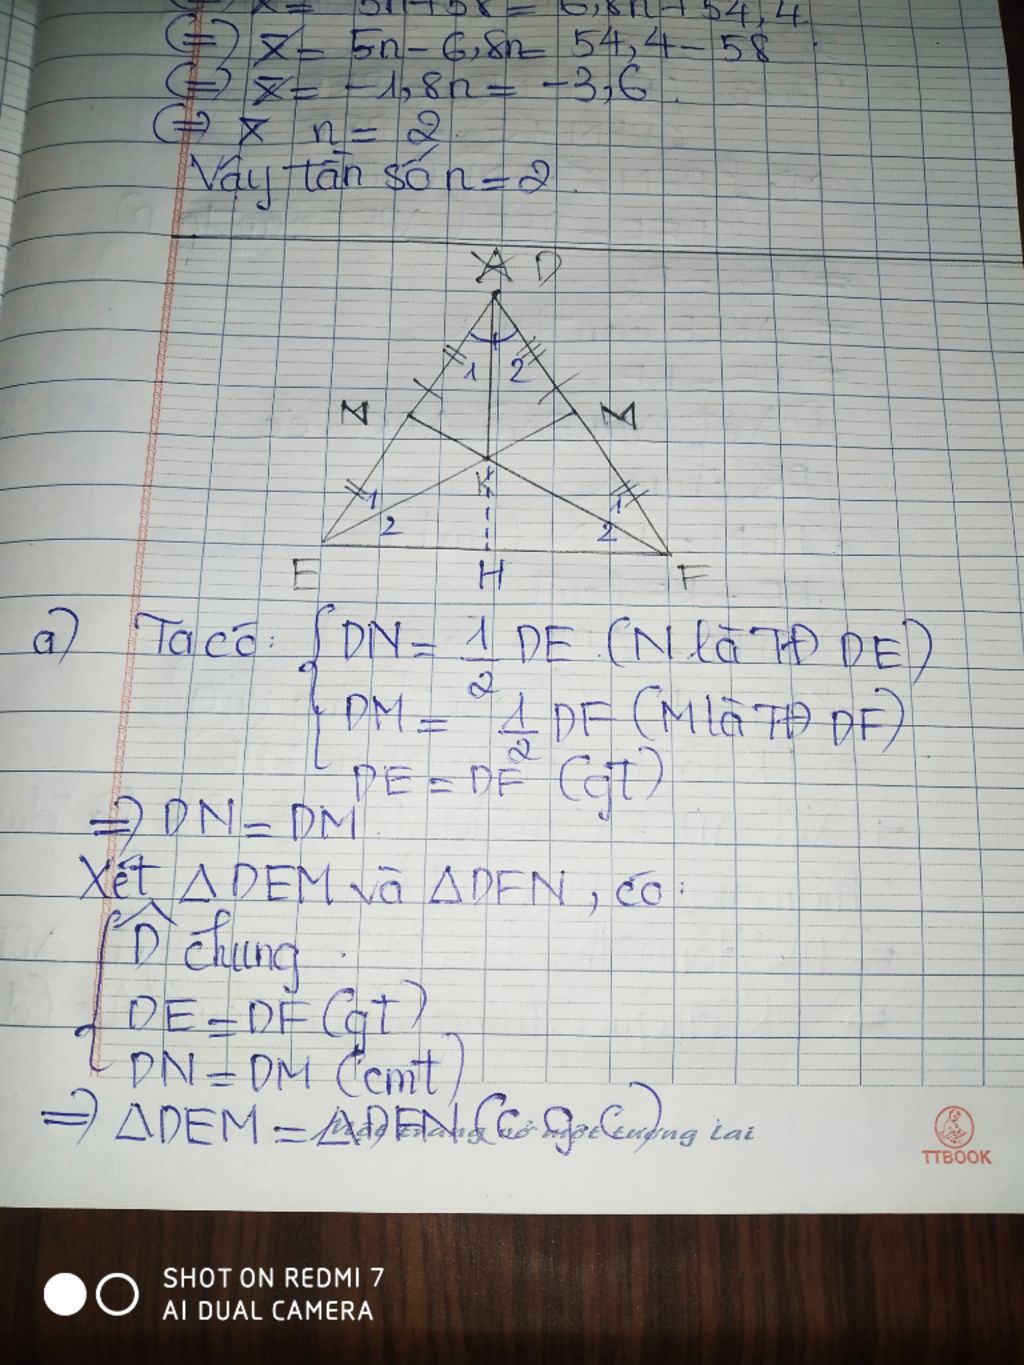 ⇔ x̄ = 5n+58 = 6,8n+54,4
⇔ x̄ = 5n-6,8n = 54,4-58
⇔ x̄ = -1,8n = -3,6
⇔ x̄ n = 2
Vậy tần số n=2
A D
1 2
N M
K
1 1
2 2
E H F
a) Ta có: { DN = 1/2 DE (N là TĐ DE)
DM = 1/2 DF (M là TĐ DF)
DE = DF (gt)
=> DN = DM
Xét Δ DEM và Δ DFN, có:
D̂ chung
DE = DF (gt)
DN = DM (cmt)
=> ΔDEM = ΔDFN (c.g.c)
một tương lai
TTBOOK
SHOT ON REDMI 7
AI DUAL CAMERA